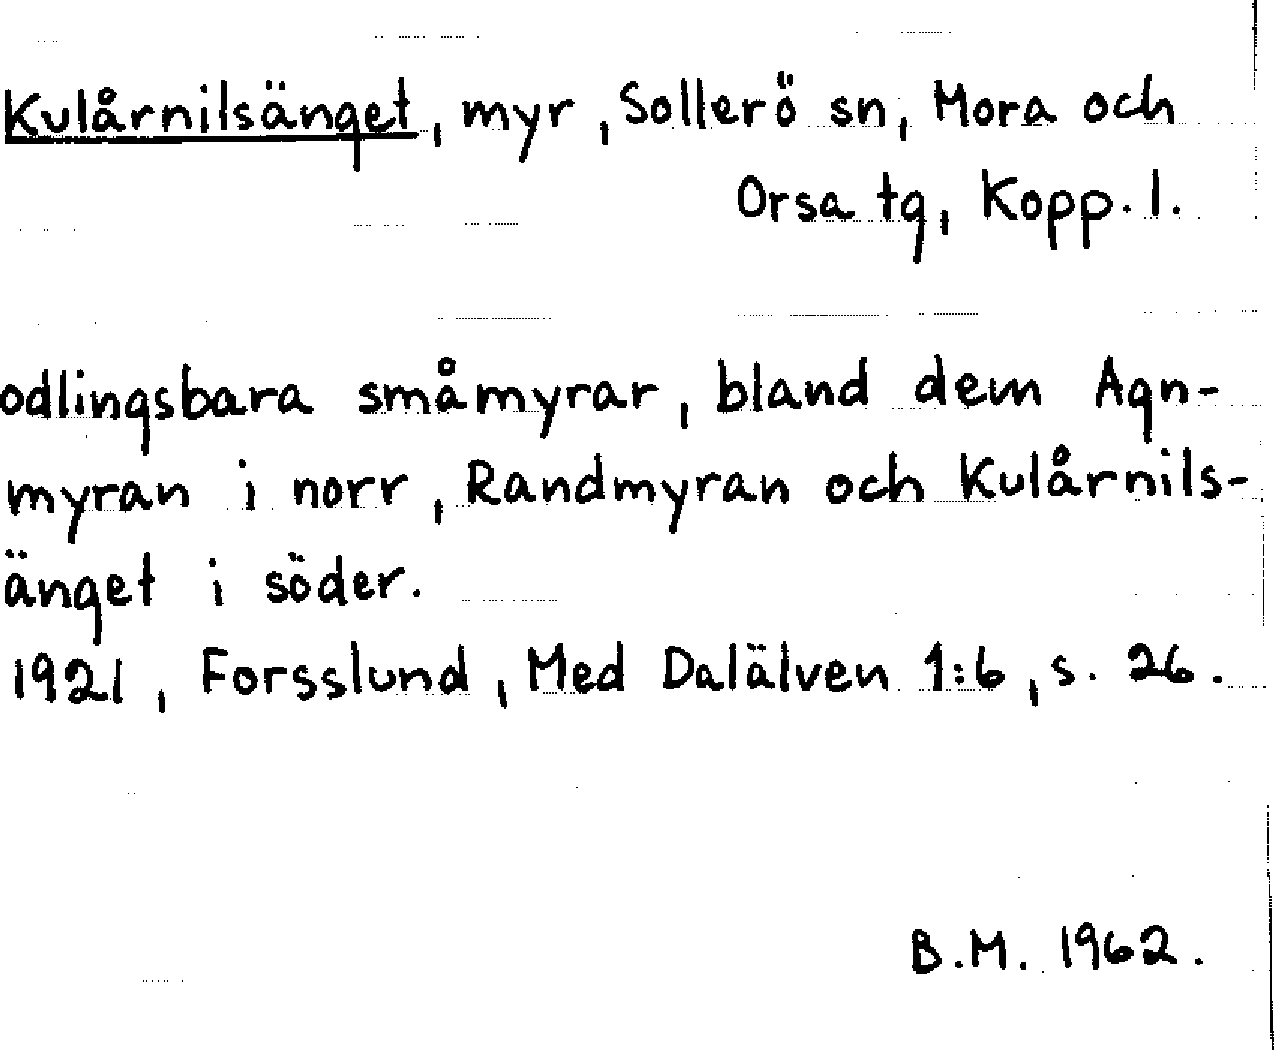 Kulårnilsänget, myr, Sollerö sn, Mora och
Orsa tg, Kopp. l.
odlingsbara småmyrar, bland dem Agn-
myran i norr, Randmyran och Kulårnils-
änget i söder.
1921, Forsslund, Med Dalälven 1:6, s. 26.
B.M. 1962.